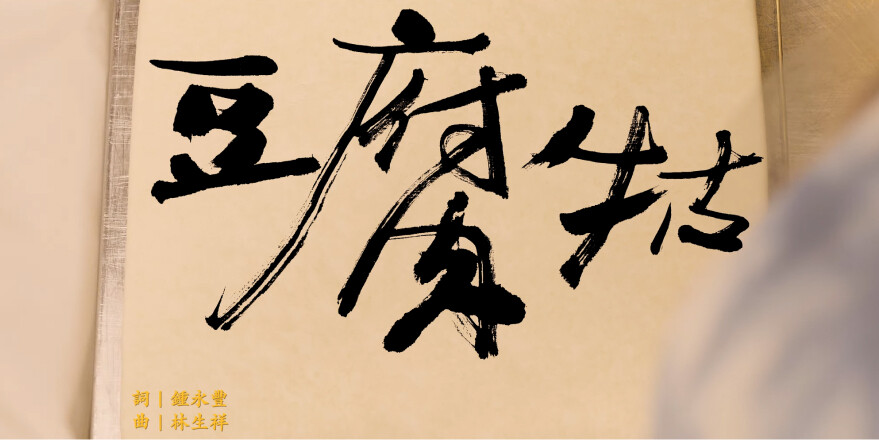 豆腐牯
詞｜鍾永豐
曲｜林生祥